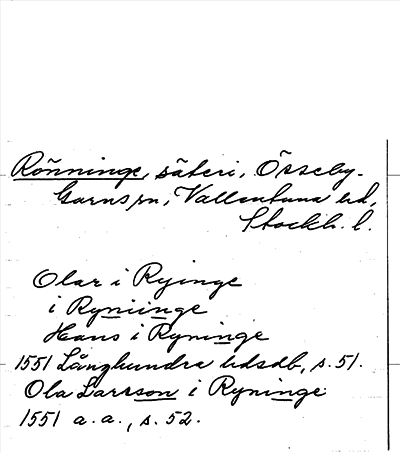 Rönninge, säteri, Össeby-
Garns sn, Vallentuna hd,
Stockh. l.
Olar i Ryinge
i Ryniinge
Hans i Ryninge
1551 Långhundra hdsdb, s. 51.
Ola Larsson i Ryninge
1551 a.a., s. 52.